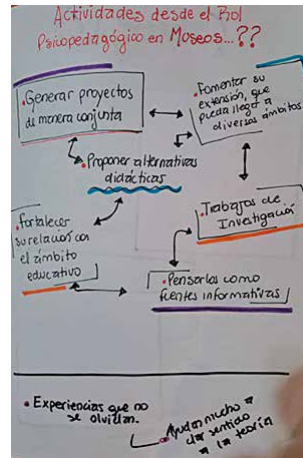 Actividades desde el Rol
Psicopedagógico en Museos...??
• Generar proyectos
de manera conjunta
• Fomentar su
extensión, que
pueda llegar a
diversos ámbitos
• Proponer alternativas
didácticas
• Fortalecer
su relación con
el ámbito
educativo
• Trabajos de
Investigación
• Pensarlos como
fuentes informativas
• Experiencias que no
se olvidan.
• Ayudan mucho a
dar sentido
a la teoría